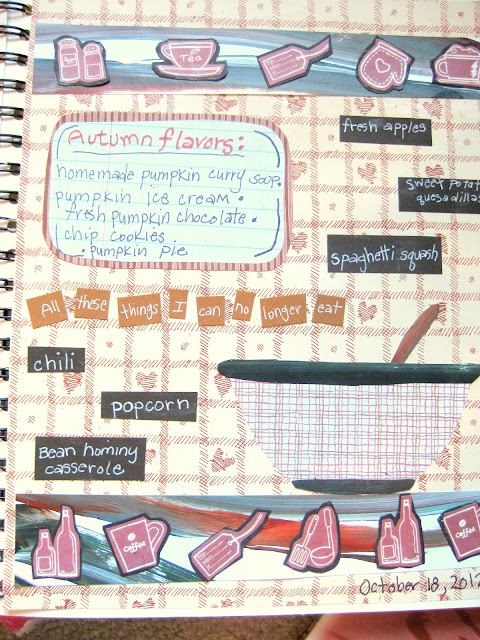 Tea
Autumn flavors:
homemade pumpkin curry soup.
pumpkin ice cream •
fresh pumpkin chocolate •
chip cookies
• pumpkin pie
fresh apples
sweet potat
quesadillas
spaghetti squash
All these things I can no longer eat
chili
popcorn
Bean hominy
casserole
Coffee
Coffee
October 18, 2012